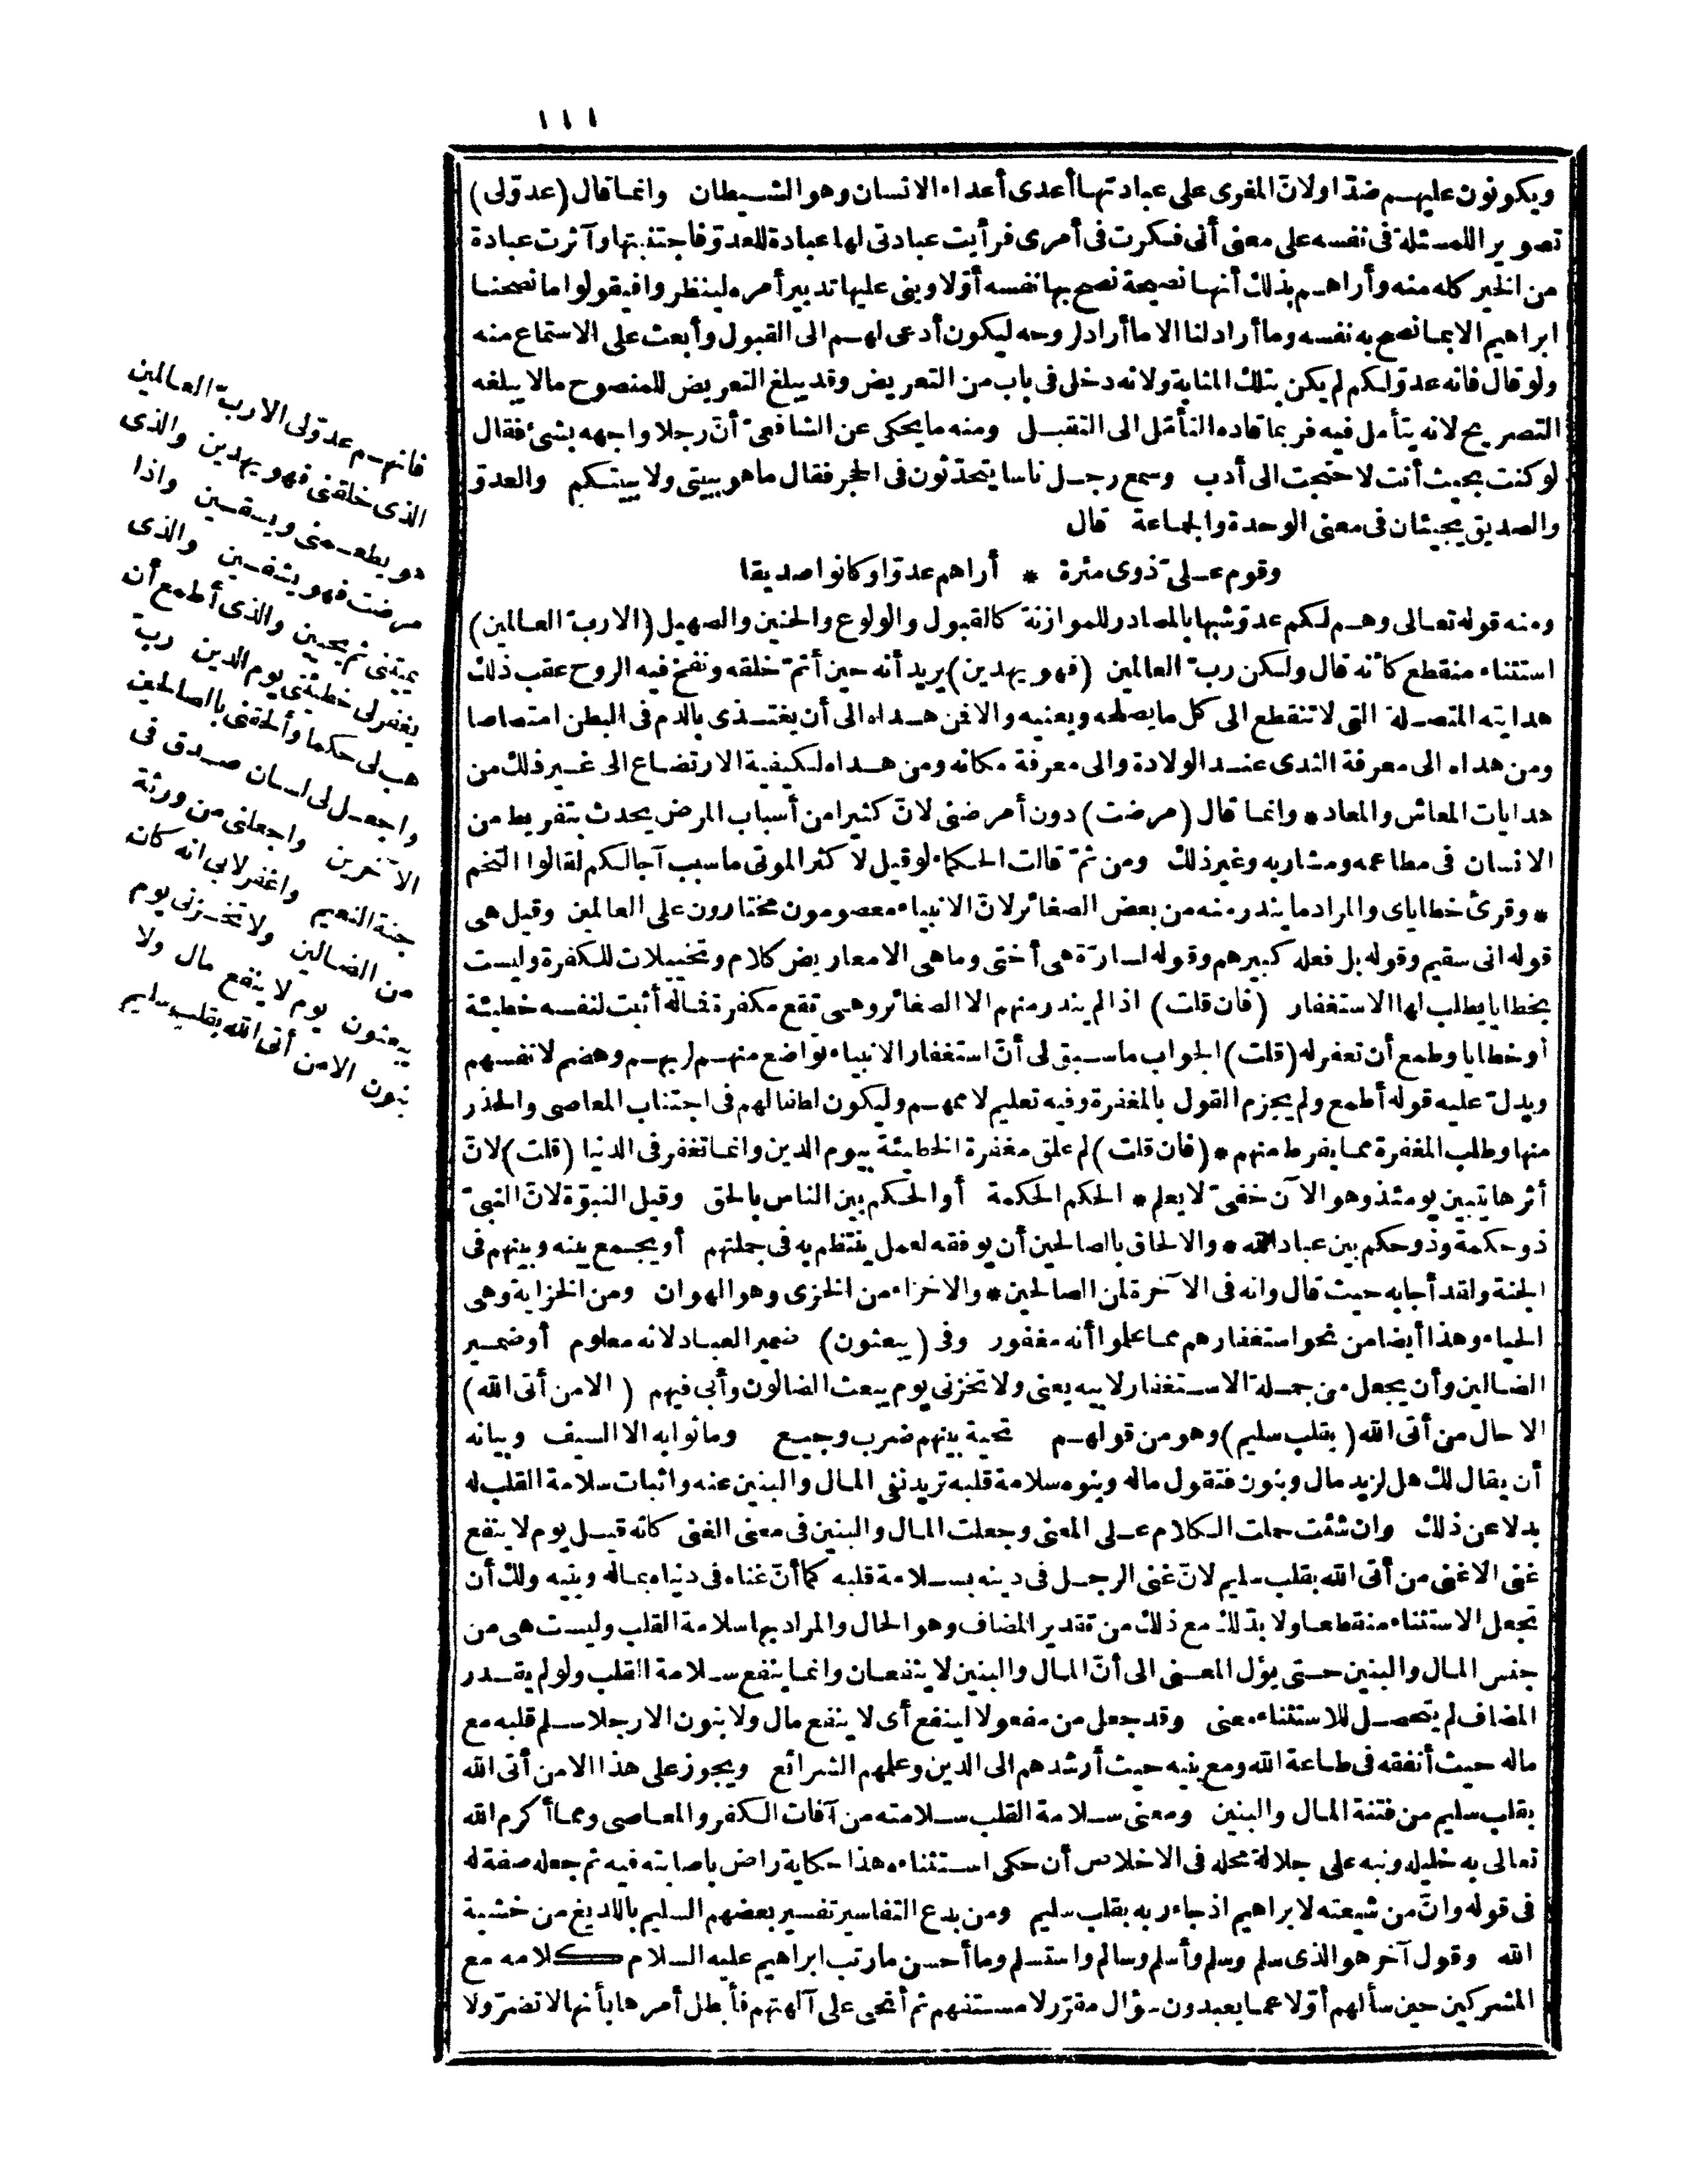 ١١١
ويكونون عليهم ضدّا ولانّ المغرى على عبادتها أعدى أعداء الانسان وهو الشيطان وانما قال (عدوّلى)
تصويرا للمسئلة فى نفسه على معنى أنى فكرت فى أمرى فرأيت عبادتى لها عبادة للعدوّ فاجتنبتها وآثرت عبادة
من الخير كله منه وأراهم بذلك أنها نصيحة نصح بها نفسه أوّلا وبنى عليها تدبير أمره لينظروا فيقولوا ما نصحنا
ابراهيم الا بما نصح به نفسه وما أراد لنا الا ما أراد لروحه ليكون أدعى لهم الى القبول وأبعث على الاستماع منه
ولو قال فانه عدوّ لكم لم يكن بتلك المثابة ولانه دخل فى باب من التعريض وقد يبلغ التعريض للمنصوح مالا يبلغه
التصريح لانه يتأمل فيه فربما قاده التأمّل الى التقبل ومنه ما يحكى عن الشافعىّ أنّ رجلا واجهه بشئ فقال
لو كنت بحيث أنت لاحتجت الى أدب وسمع رجل ناسا يتحدّثون فى الحجر فقال ما هو ببيتى ولا بيتكم والعدوّ
والصديق يجيئان فى معنى الوحدة والجماعة قال
وقوم علىّ ذوى مئرة * أراهم عدوّا وكانوا صديقا
ومنه قوله تعالى وهم لكم عدوّ شبها بالمصادر للموازنة كالقبول والولوع والحنين والصهيل (الا ربّ العالمين)
استثناء منقطع كأنه قال ولكن ربّ العالمين (فهو يهدين) يريد أنه حين أتمّ خلقه ونفخ فيه الروح عقب ذلك
هدايته المتصلة التى لا تنقطع الى كل ما يصلحه ويعنيه والا فمن هداه الى أن يغتذى بالدم فى البطن امتصاصا
ومن هداه الى معرفة الثدى عند الولادة والى معرفة مكانه ومن هداه لكيفية الارتضاع الى غير ذلك من
هدايات المعاش والمعاد * وانما قال (مرضت) دون أمرضنى لانّ كثيرا من أسباب المرض يحدث بتفريط من
الانسان فى مطاعمه ومشاربه وغير ذلك ومن ثمّ قالت الحكماء لو قيل لاكثر الموتى ما سبب آجالكم لقالوا التخم
* وقرئ خطاياى والمراد ما يندر منه من بعض الصغائر لانّ الانبياء معصومون مختارون على العالمين وقيل هى
قوله انى سقيم وقوله بل فعله كبيرهم وقوله لسارّة هى أختى وما هى الا معاريض كلام وتخييلات للكفرة وليست
بخطايا يطلب لها الاستغفار (فان قلت) اذا لم يندر منهم الا الصغائر وهى تقع مكفرة فماله أثبت لنفسه خطيئة
أو خطايا وطمع أن تغفر له (قلت) الجواب ما سبق لى أنّ استغفار الانبياء تواضع منهم لربهم وهضم لانفسهم
ويدلّ عليه قوله أطمع ولم يجزم القول بالمغفرة وفيه تعليم لاممهم وليكون لطفا لهم فى اجتناب المعاصى والحذر
منها وطلب المغفرة مما يفرط منهم * (فان قلت) لم علق مغفرة الخطيئة بيوم الدين وانما تغفر فى الدنيا (قلت) لانّ
أثرها يتبين يومئذ وهو الآن خفىّ لا يعلم * الحكم الحكمة أو الحكم بين الناس بالحق وقيل النبوّة لانّ النبىّ
ذو حكمة وذو حكم بين عباد الله * والالحاق بالصالحين أن يوفقه لعمل ينتظم به فى جملتهم أو يجمع بينه وبينهم فى
الجنة ولقد أجابه حيث قال وانه فى الآخرة لمن الصالحين * والاخزاء من الخزى وهو الهوان ومن الخزاية وهى
الحياء وهذا أيضا من نحو استغفارهم مما علموا أنه مغفور وفى (يبعثون) ضمير العباد لانه معلوم أو ضمير
الضالين وأن يجعل من جملة الاستغفار لابيه يعنى ولا تخزنى يوم يبعث الضالون وأبى فيهم (الا من أتى الله)
الا حال من أتى الله (بقلب سليم) وهو من قولهم تحية بينهم ضرب وجيع وما ثوابه الا السيف وبيانه
أن يقال لك هل لزيد مال وبنون فتقول ماله وبنوه سلامة قلبه تريد نفى المال والبنين عنه واثبات سلامة القلب له
بدلا عن ذلك وان شئت حملت الكلام على المعنى وجعلت المال والبنين فى معنى الغنى كانه قيل يوم لا ينفع
غنى الا غنى من أتى الله بقلب سليم لانّ غنى الرجل فى دينه بسلامة قلبه كما أنّ غناه فى دنياه بماله وبنيه ولك أن
تجعل الاستثناء منقطعا ولا بدّ لك مع ذلك من تقدير المضاف وهو الحال والمراد بها سلامة القلب وليست هى من
جنس المال والبنين حتى يؤل المعنى الى أنّ المال والبنين لا ينفعان وانما ينفع سلامة القلب ولو لم يقدر
المضاف لم يتحصل للاستثناء معنى وقد جعل من مفعولا لينفع أى لا ينفع مال ولا بنون الا رجلا سلم قلبه مع
ماله حيث أنفقه فى طاعة الله ومع بنيه حيث أرشدهم الى الدين وعلمهم الشرائع ويجوز على هذا الا من أتى الله
بقلب سليم من فتنة المال والبنين ومعنى سلامة القلب سلامته من آفات الكفر والمعاصى ومما أكرم الله
تعالى به خليله ونبه على جلالة محله فى الاخلاص أن حكى استثناءه هذا حكاية راض باصابته فيه ثم جعله صفة له
فى قوله وانّ من شيعته لابراهيم اذ جاء ربه بقلب سليم ومن بدع التفاسير تفسير بعضهم السليم باللديغ من خشية
الله وقول آخر هو الذى سلم وسلم وأسلم وسالم واستسلم وما أحسن ما رتب ابراهيم عليه السلام كلامه مع
المشركين حين سألهم أوّلا عما يعبدون سؤال مقرّر لا مستفهم ثم أنحى على آلهتهم فأبطل أمرها بأنها لا تضرّ ولا
فانهم عدوّلى الا ربّ العالمين
الذى خلقنى فهو يهدين والذى
هو يطعمنى ويسقين واذا
مرضت فهو يشفين والذى
يميتنى ثم يحيين والذى أطمع أن
يغفر لى خطيئتى يوم الدين ربّ
هب لى حكما وألحقنى بالصالحين
واجعل لى لسان صدق فى
الآخرين واجعلنى من ورثة
جنة النعيم واغفر لابى انه كان
من الضالين ولا تخزنى يوم
يبعثون يوم لا ينفع مال ولا
بنون الا من أتى الله بقلب سليم